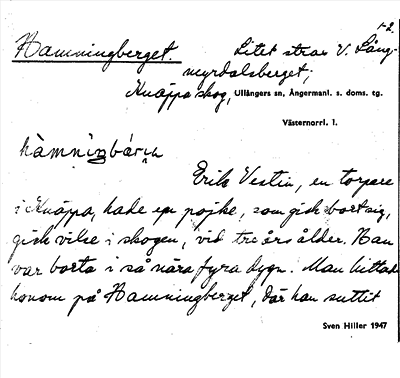 1-2.
Hamningberget. Litet strax V. Lång-
myrdalsberget;
Knäppa skog, Ullångers sn, Ångermanl. s. doms. tg.
Västernorrl. l.
hàmnìŋbárjn
Erik Vestin, en torpare
i Knäppa, hade en pojke, som gick bort sig,
gick vilse i skogen, vid tre års ålder. Han
var borta i så nära fyra dygn. Man hittade
honom på Hamningberget, där han suttit
Sven Hiller 1947